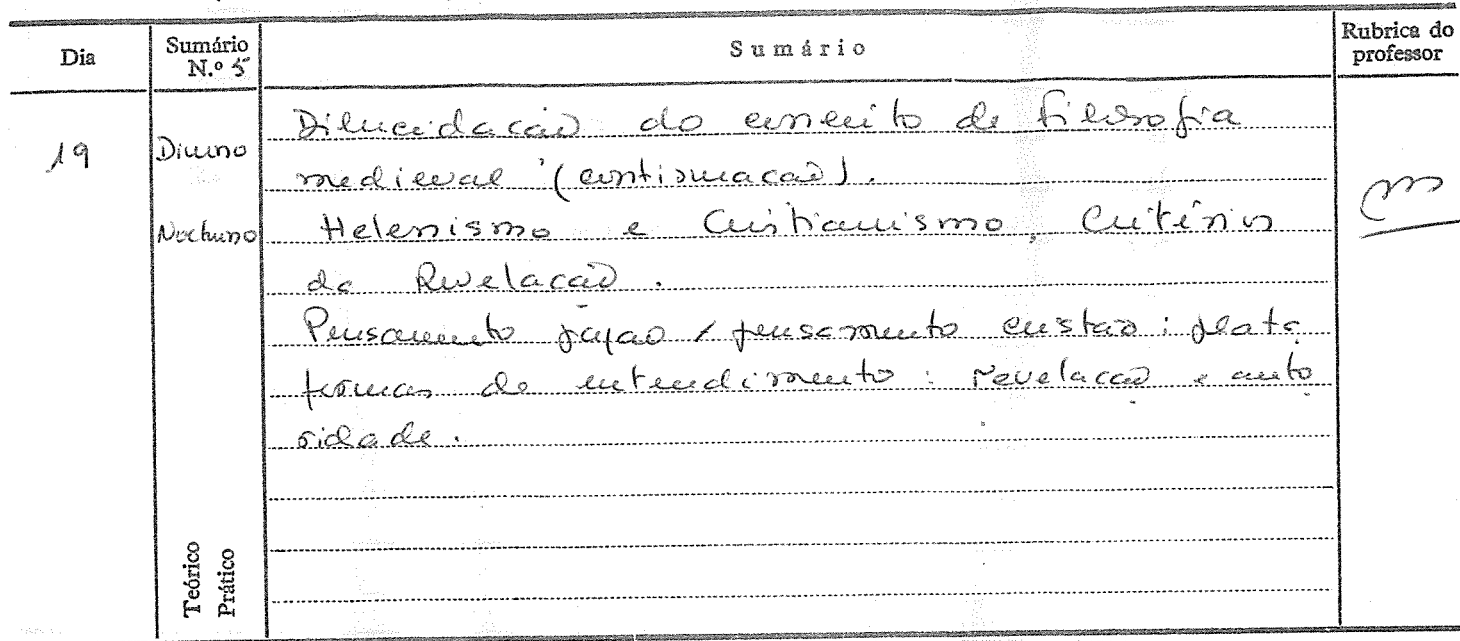 Dia Sumário N.º 5 Sumário Rubrica do professor
19 Diurno Dilucidação do conceito de filosofia
medieval (continuação).
Nocturno Helenismo e Cristianismo, Critérios
da Revelação.
Pensamento pagão / pensamento cristão: plata
formas de entendimento: revelação e auto
ridade.
Teórico
Prático